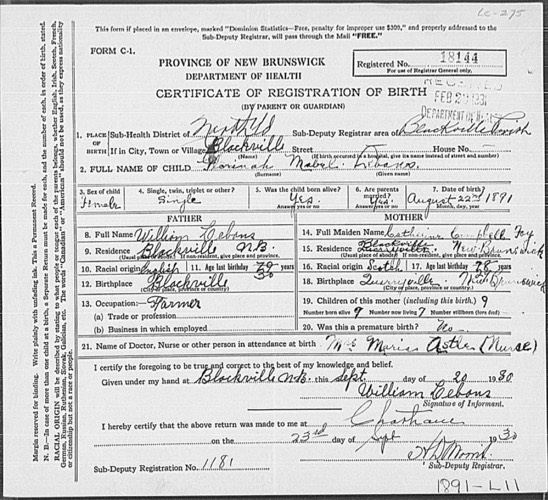 LC-275
This form if placed in an envelope, marked "Dominion Statistics—Free, penalty for improper use $300," and properly addressed to the
Sub-Deputy Registrar, will pass through the Mail "FREE."
FORM C-1.
PROVINCE OF NEW BRUNSWICK
DEPARTMENT OF HEALTH
Registered No. 18144
For use of Registrar General only.
CERTIFICATE OF REGISTRATION OF BIRTH
(BY PARENT OR GUARDIAN)
FEB
DEPARTMENT OF
1. PLACE OF BIRTH Sub-Health District of North'd Sub-Deputy Registrar area of Blackville Parish
If in City, Town or Village Blackville Street House No. —
(Name) (If birth occurred in a hospital, give its name instead of street and number)
2. FULL NAME OF CHILD Mabel
(Surname) (Given name)
3. Sex of child Female
4. Single, twin, triplet or other? Single
5. Was the child born alive? Yes.
Answer yes or no
6. Are parents married? Yes
Answer yes or no
7. Date of birth? August 22nd 1891
FATHER
MOTHER
8. Full Name William Lebans
9. Residence Blackville N.B.
(Usual place of abode) If non-resident, give place and province.
10. Racial origin English 11. Age last birthday years
12. Birthplace Blackville
(City, place, province or country.)
13. Occupation: Farmer
(a) Trade or profession
(b) Business in which employed
14. Full Maiden Name Catherine Campbell
15. Residence Blackville New Brunswick
(Usual place of abode) If non-resident, give place and province.
16. Racial origin Scotch 17. Age last birthday 28 years
18. Birthplace New Brunswick
(City, place, province or country.)
19. Children of this mother (including this birth) 9
Number born alive 9 Number now living 7 Number stillborn (born dead) —
20. Was this a premature birth? No
21. Name of Doctor, Nurse or other person in attendance at birth Mrs Maria (Nurse)
I certify the foregoing to be true and correct to the best of my knowledge and belief.
Given under my hand at Blackville N.B. this Sept. day of 20 1930
William Lebans
Signature of Informant.
I hereby certify that the above return was made to me at Chatham
on the 23rd day of Sept 1930
Sub-Deputy Registration No. 1181
Sub-Deputy Registrar.
1891-L11
Margin reserved for binding. Write plainly with unfading ink. This a Permanent Record.
N. B.—In case of more than one child at a birth, a Separate Return must be made for each, and the number of each, in order of birth, stated.
RACIAL ORIGIN will be described by stating to what people or tongue each of the parents belongs, whether English, Irish, Scotch, French,
German, Russian, Ruthenian, Slovak, Galician, etc. The word "Canadian" or "American" should not be used, as they express nationality
or citizenship but not a race or people.